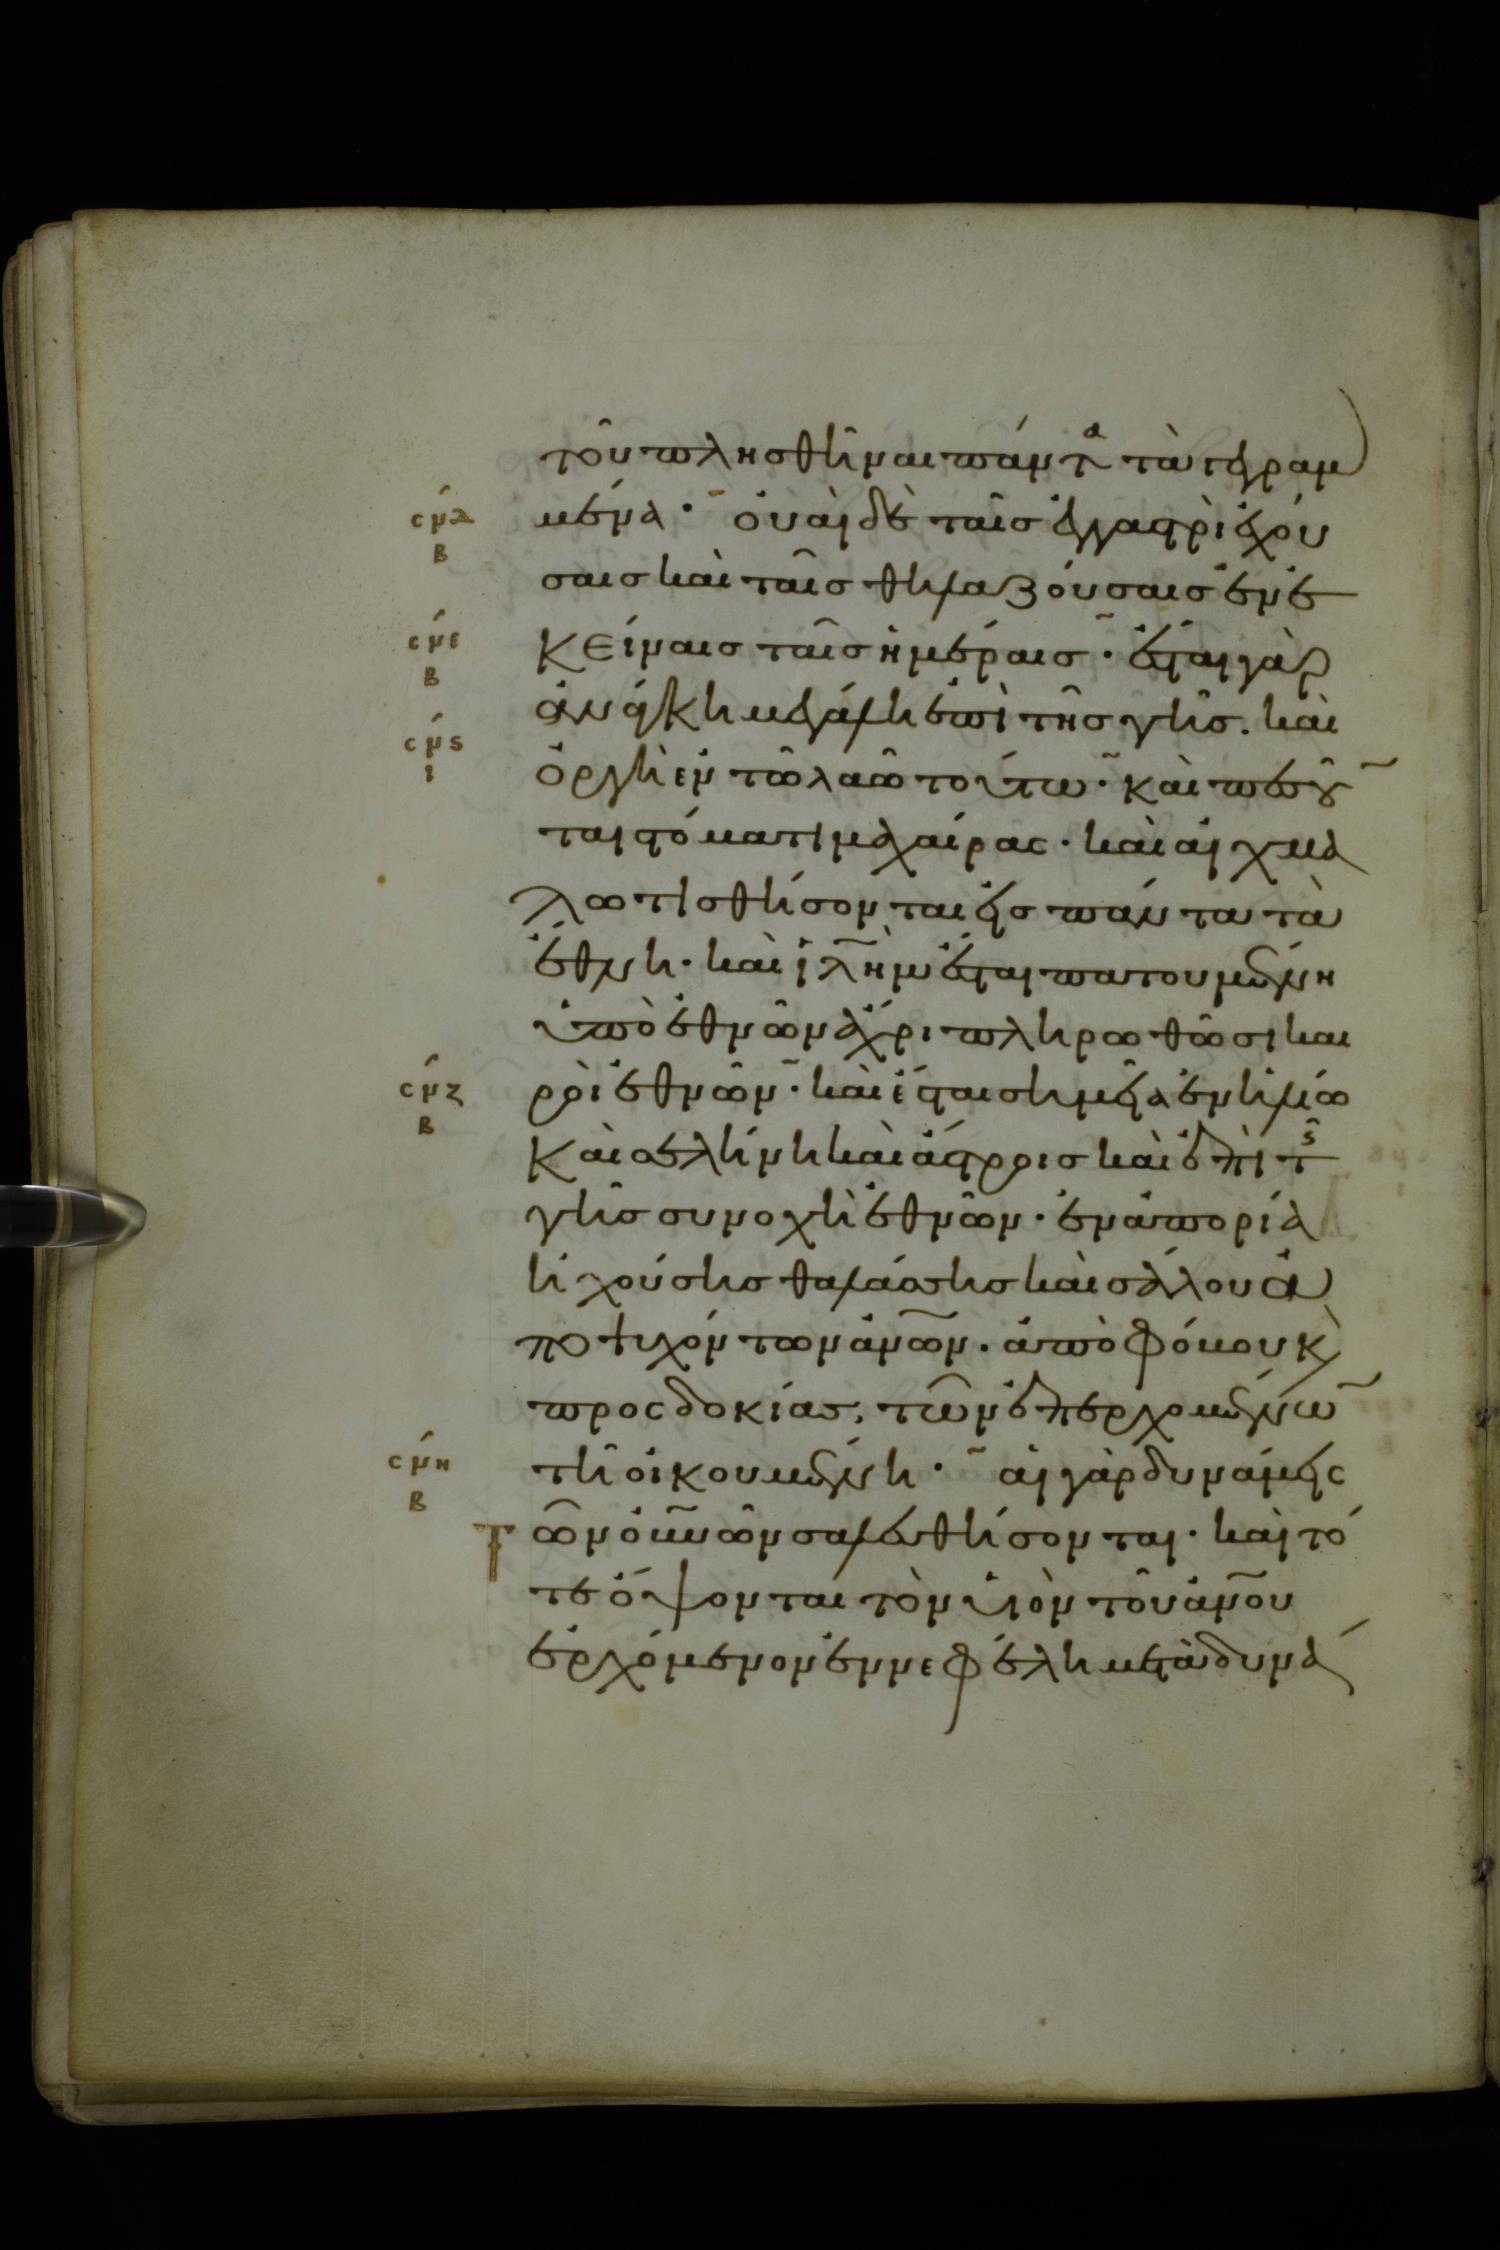 τοῦ πλησθῆναι πάντα τὰ γεγραμ
σμδ
β
μένα· οὐαὶ δὲ ταῖς ἐν γαστρὶ ἐχού
σαις καὶ ταῖς θηλαζούσαις ἐν ἐ
σμε
β
κείναις ταῖς ἡμέραις· ἔσται γὰρ
ἀνάγκη μεγάλη ἐπὶ τῆς γῆς. καὶ
σμς
ι
ὀργὴ ἐν τῶ λαῶ τούτω· καὶ πεσοῦν
ται στόματι μαχαίρας· καὶ αἰχμα
λωτισθήσονται εἰς πάντα τὰ
ἔθνη· καὶ ἰλημ ἔσται πατουμένη
ὑπὸ ἐθνῶν ἄχρι πληρωθῶσι και
σμζ
β
ροὶ ἐθνῶν· καὶ ἔσται σημεῖα ἐν ἡλίω
καὶ σελήνη καὶ ἄστροις καὶ ἐπὶ τῆς
γῆς συνοχὴ ἐθνῶν· ἐν ἀπορία
ἠχούσης θαλάσσης καὶ σάλου ἀ
ποψυχόντων ἀνων. ἀπὸ φόβου κ
προσδοκίας, τῶν ἐπερχομένων
σμη
β
τῆ οἰκουμένη· αἱ γὰρ δυνάμεις
τῶν οὐνων σαλευθήσονται· καὶ τό
τε ὄψονται τὸν υἱὸν τοῦ ἀνου
ἐρχόμενον ἐν νεφέλη μετὰ δυνά